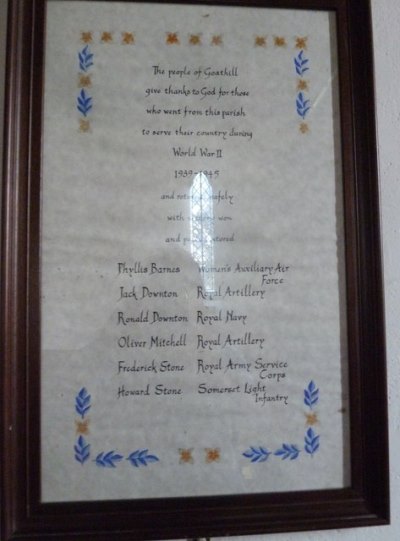 The people of Goathill
give thanks to God for those
who went from this parish
to serve their country during
World War II
1939-1945
and safely
with won
and
Phyllis Barnes Women's Auxiliary Air
Force
Jack Downton Royal Artillery
Ronald Downton Royal Navy
Oliver Mitchell Royal Artillery
Frederick Stone Royal Army Service
Corps
Howard Stone Somerset Light
Infantry